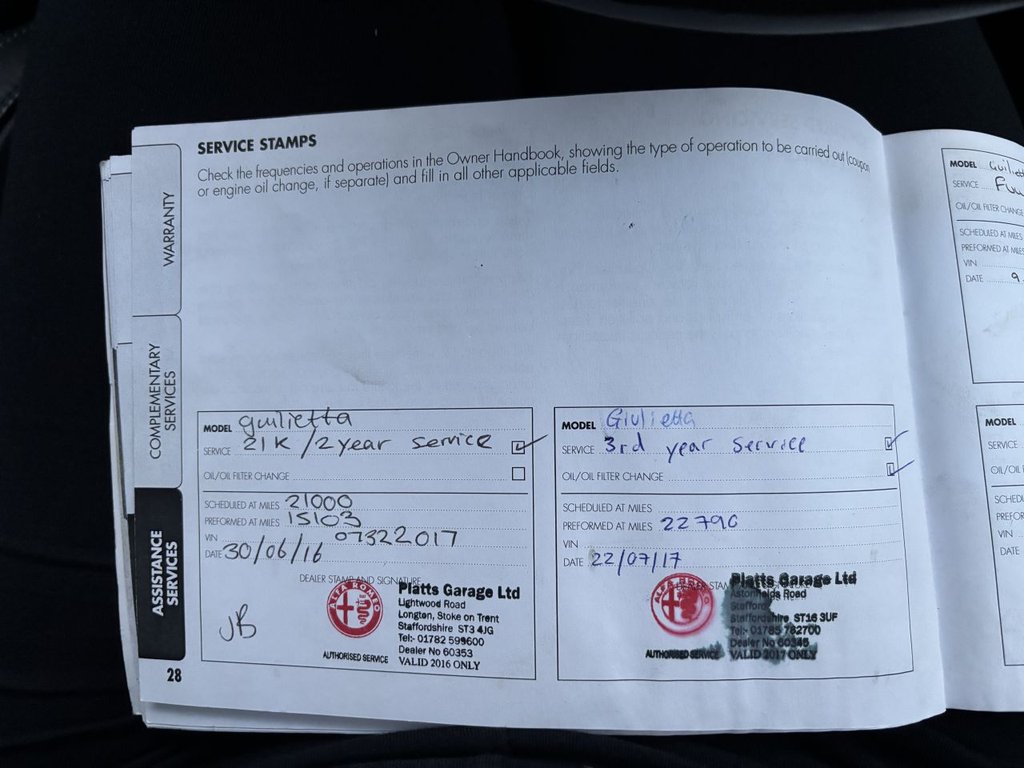 SERVICE STAMPS
Check the frequencies and operations in the Owner Handbook, showing the type of operation to be carried out (coupon
or engine oil change, if separate) and fill in all other applicable fields.
WARRANTY
COMPLEMENTARY
SERVICES
ASSISTANCE
SERVICES
MODEL guilietta
SERVICE 21K / 2 year service
OIL/OIL FILTER CHANGE
SCHEDULED AT MILES 21000
PREFORMED AT MILES 15103
VIN 07322017
DATE 30/06/16
DEALER STAMP AND SIGNATURE
JB
ALFA ROMEO
AUTHORISED SERVICE
Platts Garage Ltd
Lightwood Road
Longton, Stoke on Trent
Staffordshire ST3 4JG
Tel:- 01782 599600
Dealer No 60353
VALID 2016 ONLY
28
MODEL Giulietta
SERVICE 3rd year Service
OIL/OIL FILTER CHANGE
SCHEDULED AT MILES
PREFORMED AT MILES 22790
VIN
DATE 22/07/17
ALFA ROMEO
AUTHORISED SERVICE
Platts Garage Ltd
Astonfields Road
Stafford
Staffordshire ST16 3UF
Tel:- 01785 782700
Dealer No 60345
VALID 2017 ONLY
MODEL
SERVICE
OIL/OIL FILTER CHANGE
SCHEDULED AT MILES
PREFORMED AT MILES
VIN
DATE 9
MODEL
SERVICE
VIN
DATE